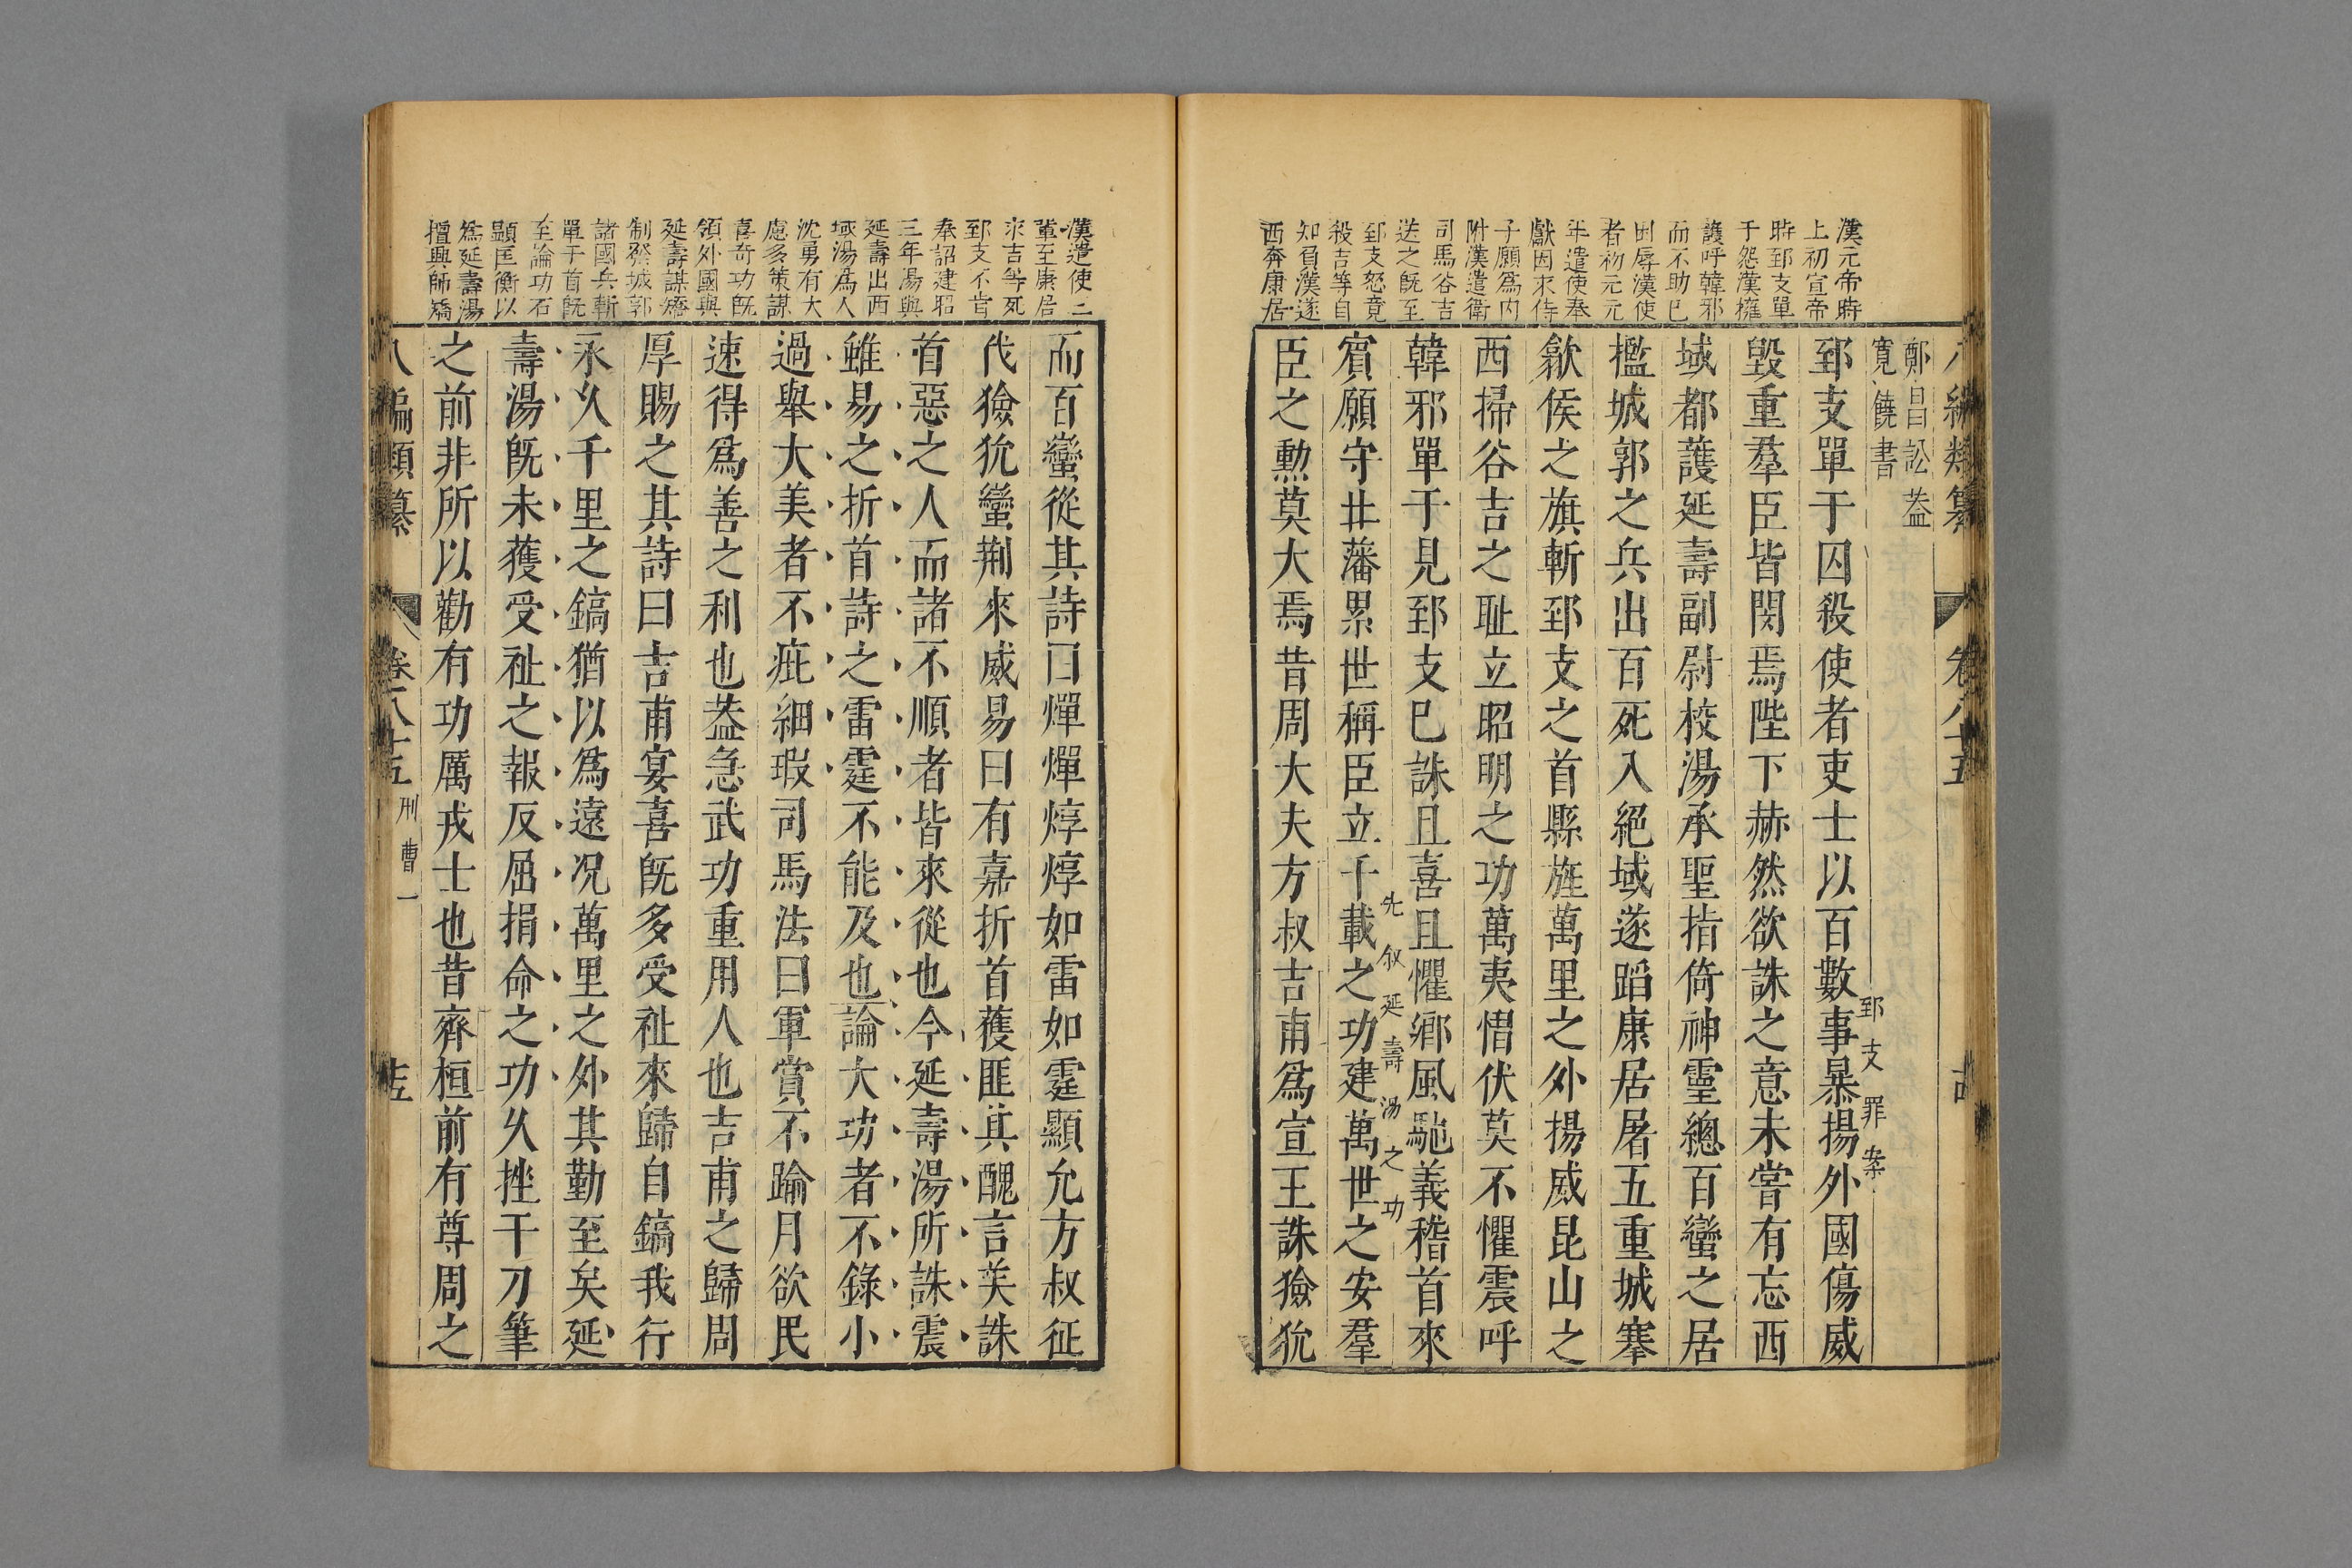 漢元帝時
上初宣帝
時郅支單
于怨漢擁
護呼韓邪
而不助已
困辱漢使
者初元元
年遣使奉
獻因求侍
子願爲内
附漢遣衛
司馬谷吉
送之既至
郅支怒竟
殺吉等自
知負漢遂
西奔康居
鄭昌訟蓋
寬饒書
郅支單于囚殺使者吏士以百數事暴揚外國傷威
郅支罪案
毀重羣臣皆閔焉陛下赫然欲誅之意未嘗有忘西
域都護延壽副尉校湯承聖指倚神靈總百蠻之居
㩜城郭之兵出百死入絕域遂蹈康居屠五重城搴
歙侯之旗斬郅支之首縣旌萬里之外揚威昆山之
西掃谷吉之耻立昭明之功萬夷慴伏莫不懼震呼
韓邪單于見郅支已誅且喜且懼鄉風馳義稽首來
先叙延壽湯之功
賓願守北藩累世稱臣立千載之功建萬世之安羣
臣之勲莫大焉昔周大夫方叔吉甫爲宣王誅獫狁
漢遣使三
輩至康居
求吉等死
郅支不肯
奉詔建昭
三年湯與
延壽出西
域湯爲人
沈勇有大
慮多策謀
喜奇功既
領外國與
延壽謀矯
制發城郭
諸國兵斬
單于首既
至論功石
顯匡衡以
爲延壽湯
擅興師矯
而百蠻從其詩曰嘽嘽焞焞如雷如霆顯允方叔征
伐獫狁蠻荆來威易曰有嘉折首獲匪其醜言美誅
首惡之人而諸不順者皆來從也今延壽湯所誅震
雖易之折首詩之雷霆不能及也論大功者不錄小
過舉大美者不疵細瑕司馬法曰軍賞不踰月欲民
速得爲善之利也蓋急武功重用人也吉甫之歸周
厚賜之其詩曰吉甫宴喜既多受祉來歸自鎬我行
永久千里之鎬猶以爲遠况萬里之外其勤至矣延
壽湯既未獲受祉之報反屈捐命之功久挫于刀筆
之前非所以勸有功厲戎士也昔齊桓前有尊周之
八編類纂
卷八十五
刑曹一